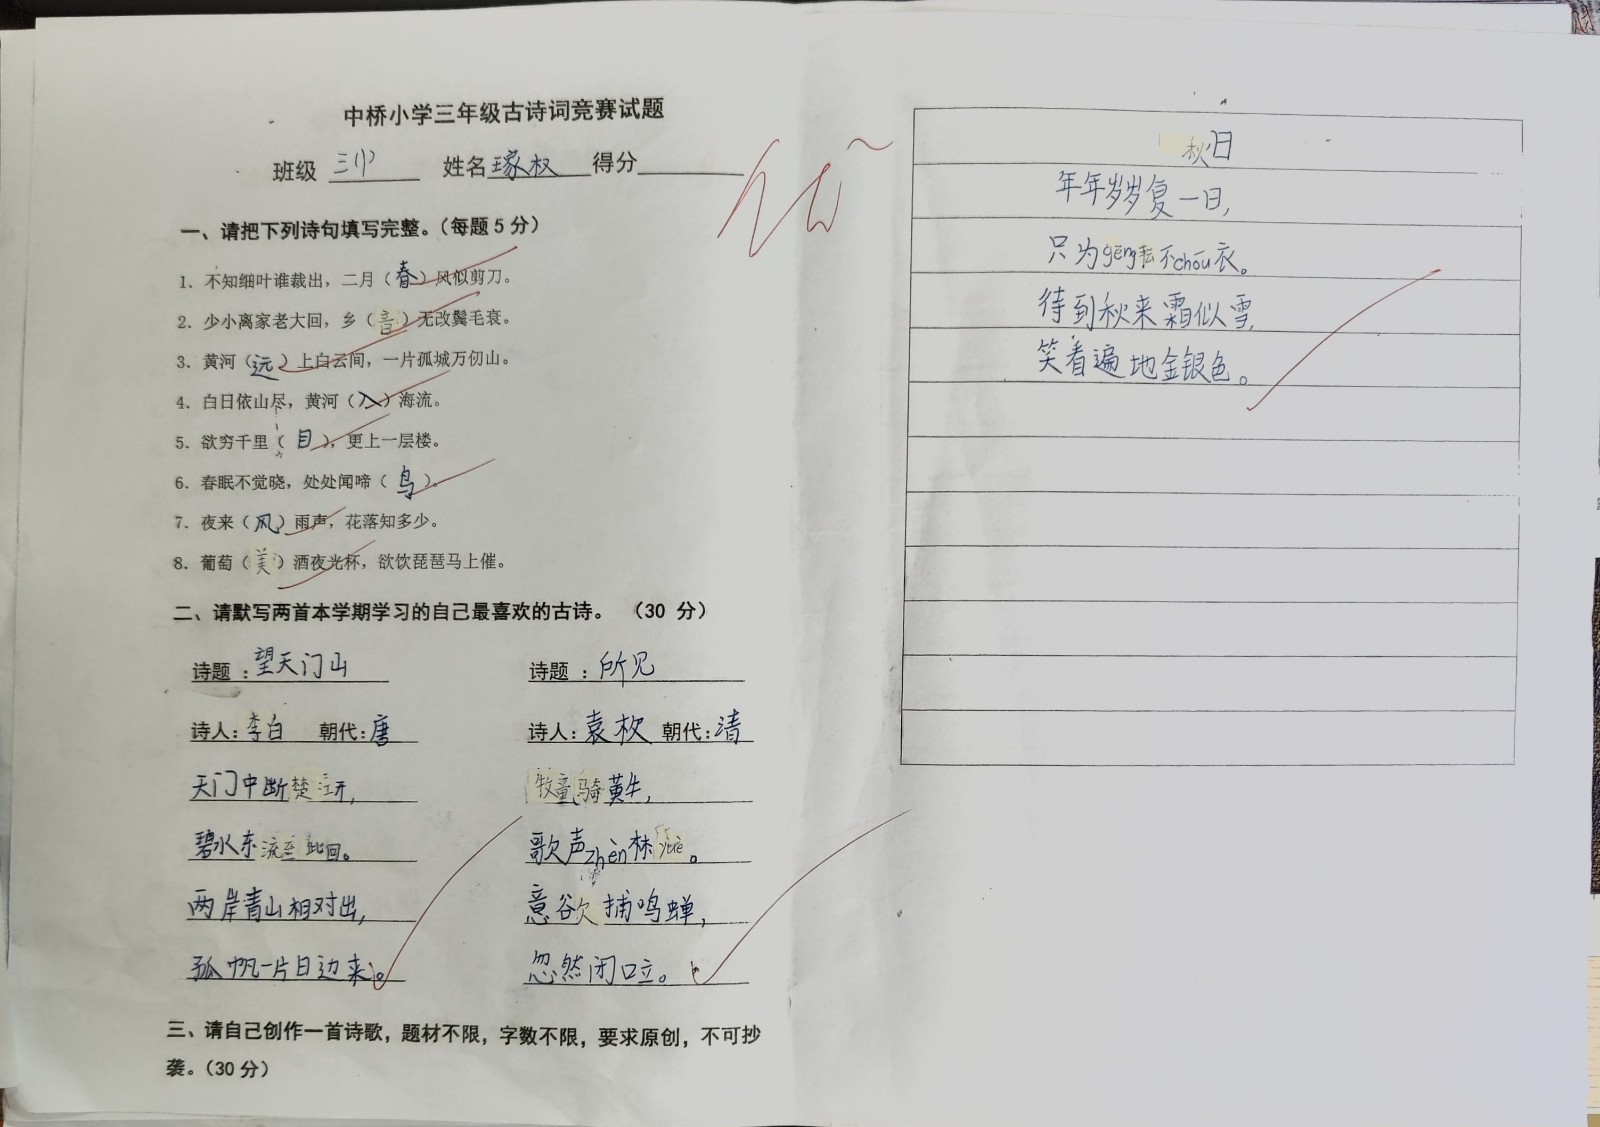 中桥小学三年级古诗词竞赛试题
班级 姓名 得分
优
一、请把下列诗句填写完整。（每题5分）
1. 不知细叶谁裁出，二月（春）风似剪刀。
2. 少小离家老大回，乡（音）无改鬓毛衰。
3. 黄河（远）上白云间，一片孤城万仞山。
4. 白日依山尽，黄河（入）海流。
5. 欲穷千里（目），更上一层楼。
6. 春眠不觉晓，处处闻啼（鸟）。
7. 夜来（风）雨声，花落知多少。
8. 葡萄（美）酒夜光杯，欲饮琵琶马上催。
二、请默写两首本学期学习的自己最喜欢的古诗。 （30 分）
诗题 ：望天门山
诗人：李白 朝代：唐
天门中断楚江开，
碧水东流至此回。
两岸青山相对出，
孤帆一片日边来。
诗题 ：所见
诗人：袁枚 朝代：清
牧童骑黄牛，
歌声zhèn林yuè。
意欲捕鸣蝉，
忽然闭口立。
三、请自己创作一首诗歌，题材不限，字数不限，要求原创，不可抄
袭。（30分）
秋日
年年岁岁复一日，
只为gēng耘不chóu衣。
待到秋来霜似雪，
笑看遍地金银色。